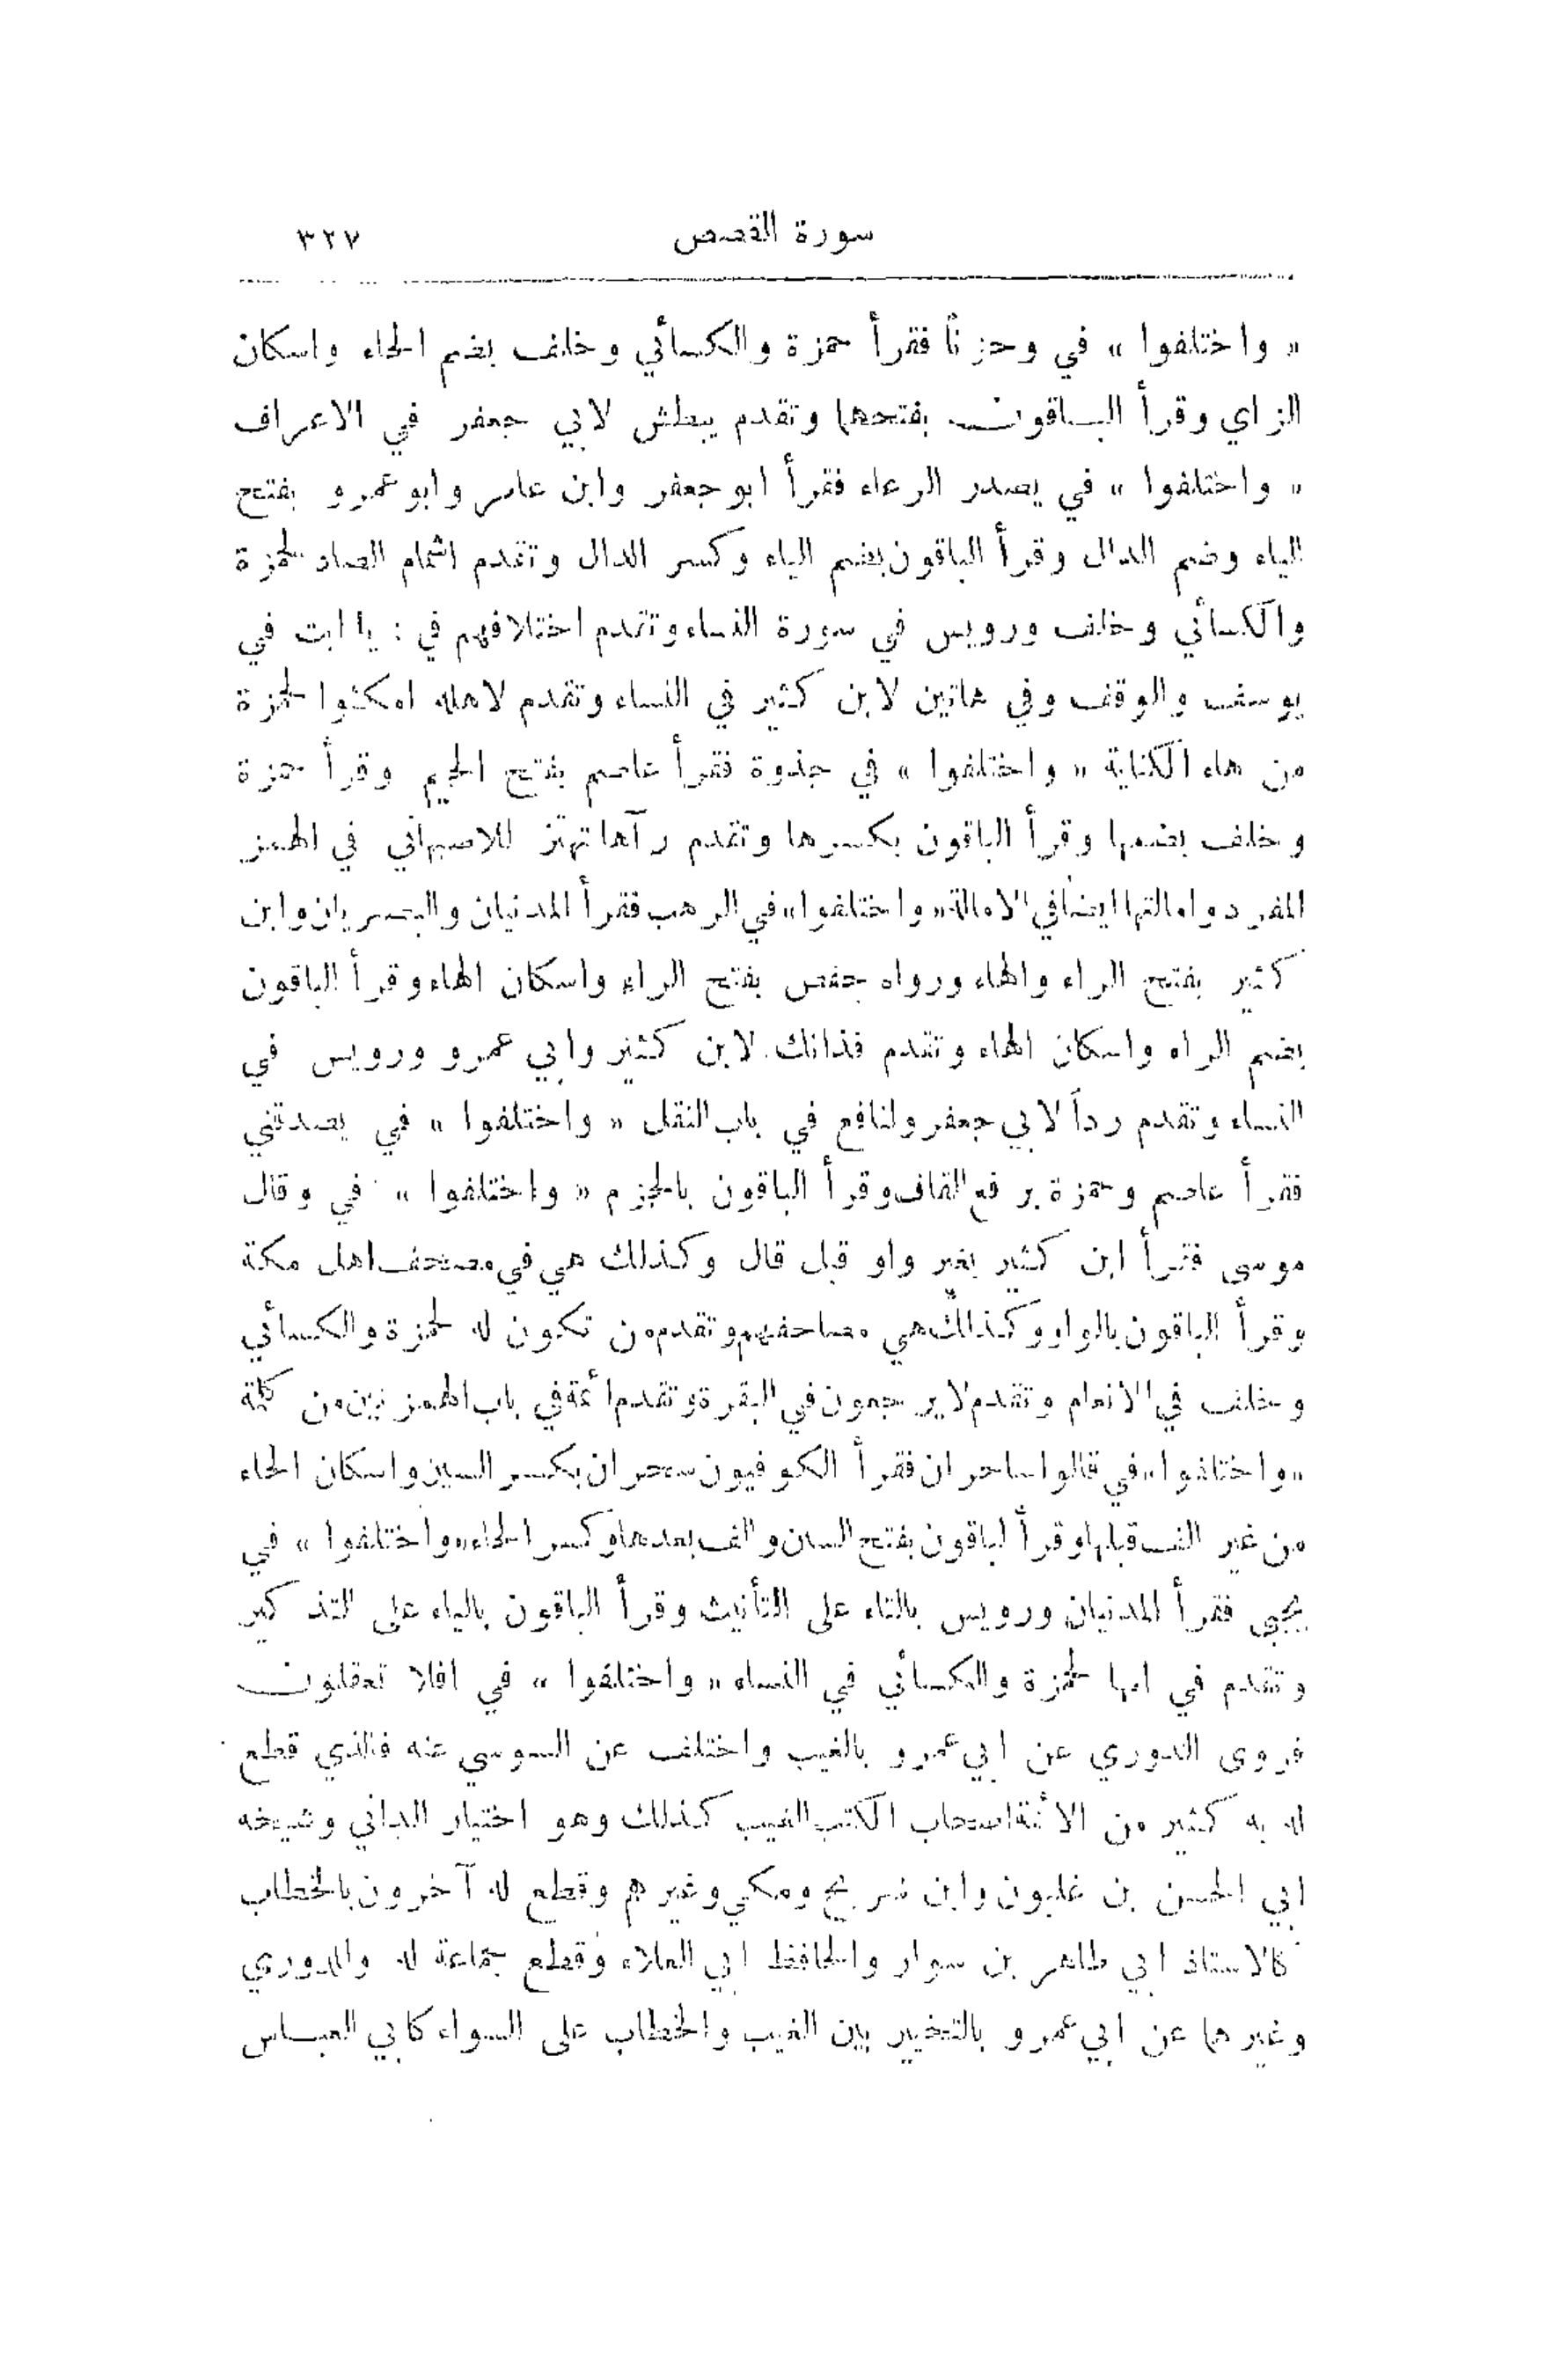 سورة القصص ٣٢٧
« واختلفوا » في وحزناً فقرأ حمزة والكسائي وخلف بضم الحاء واسكان
الزاي وقرأ الباقون بفتحهما وتقدم يبطش لابي جعفر في الاعراف
« واختلفوا » في يصدر الرعاء فقرأ ابو جعفر وابن عامر وابو عمرو بفتح
الياء وضم الدال وقرأ الباقون بضم الياء وكسر الدال وتقدم اشمام الصاد لحمزة
والكسائي وخلف ورويس في سورة النساء وتقدم اختلافهم في : يا ابت في
يوسف والوقف وفي هاتين لابن كثير في النساء وتقدم لاهله امكثوا لحمزة
من هاء الكناية « واختلفوا » في جذوة فقرأ عاصم بفتح الجيم وقرأ حمزة
وخلف بضمها وقرأ الباقون بكسرها وتقدم رآها تهتز للاصبهاني في الهمز
المفرد وامالتها ايضا في الامالة « واختلفوا » في الرهب فقرأ المدنيان والبصريان وابن
كثير بفتح الراء والهاء ورواه حفص بفتح الراء واسكان الهاء وقرأ الباقون
بضم الراء واسكان الهاء وتقدم فذانك لابن كثير وابي عمرو ورويس في
النساء وتقدم ردأ لابي جعفر ولنافع في باب النقل « واختلفوا » في يصدقني
فقرأ عاصم وحمزة برفع القاف وقرأ الباقون بالجزم « واختلفوا » في وقال
موسى فقرأ ابن كثير بغير واو قبل قال وكذلك هي في مصحف اهل مكة
وقرأ الباقون بالواو وكذلك هي مصاحفهم وتقدم من تكون له لحمزة والكسائي
وخلف في الانعام وتقدم لا يرجعون في البقرة وتقدم ائمة في باب الهمزتين من كلمة
« واختلفوا » في قالوا ساحران فقرأ الكوفيون سحران بكسر السين واسكان الحاء
من غير الف قبلها وقرأ الباقون بفتح السين والف بعدها وكسر الحاء « واختلفوا » في
يجبى فقرأ المدنيان ورويس بالتاء على التأنيث وقرأ الباقون بالياء على التذكير
وتقدم في امها لحمزة والكسائي في النساء « واختلفوا » في افلا تعقلون
فروى الدوري عن ابي عمرو بالغيب واختلف عن السوسي عنه فالذي قطع
له به كثير من الأئمة اصحاب الكتب الغيب كذلك وهو اختيار الداني وشيخه
ابي الحسن بن غلبون وابن شريح ومكي وغيرهم وقطع له آخرون بالخطاب
كالاستاذ ابي طاهر بن سوار والحافظ ابي العلاء وقطع جماعة له وللدوري
وغيرهما عن ابي عمرو بالتخيير بين الغيب والخطاب على السواء كابي العباس